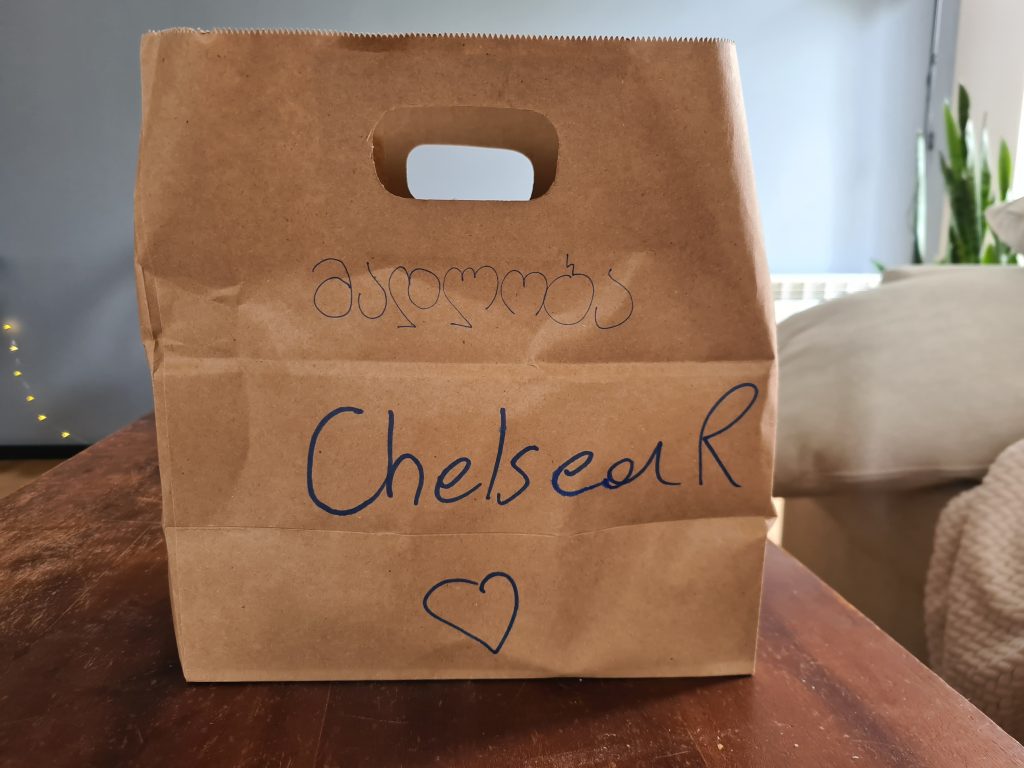 მადლობა
Chelsea R